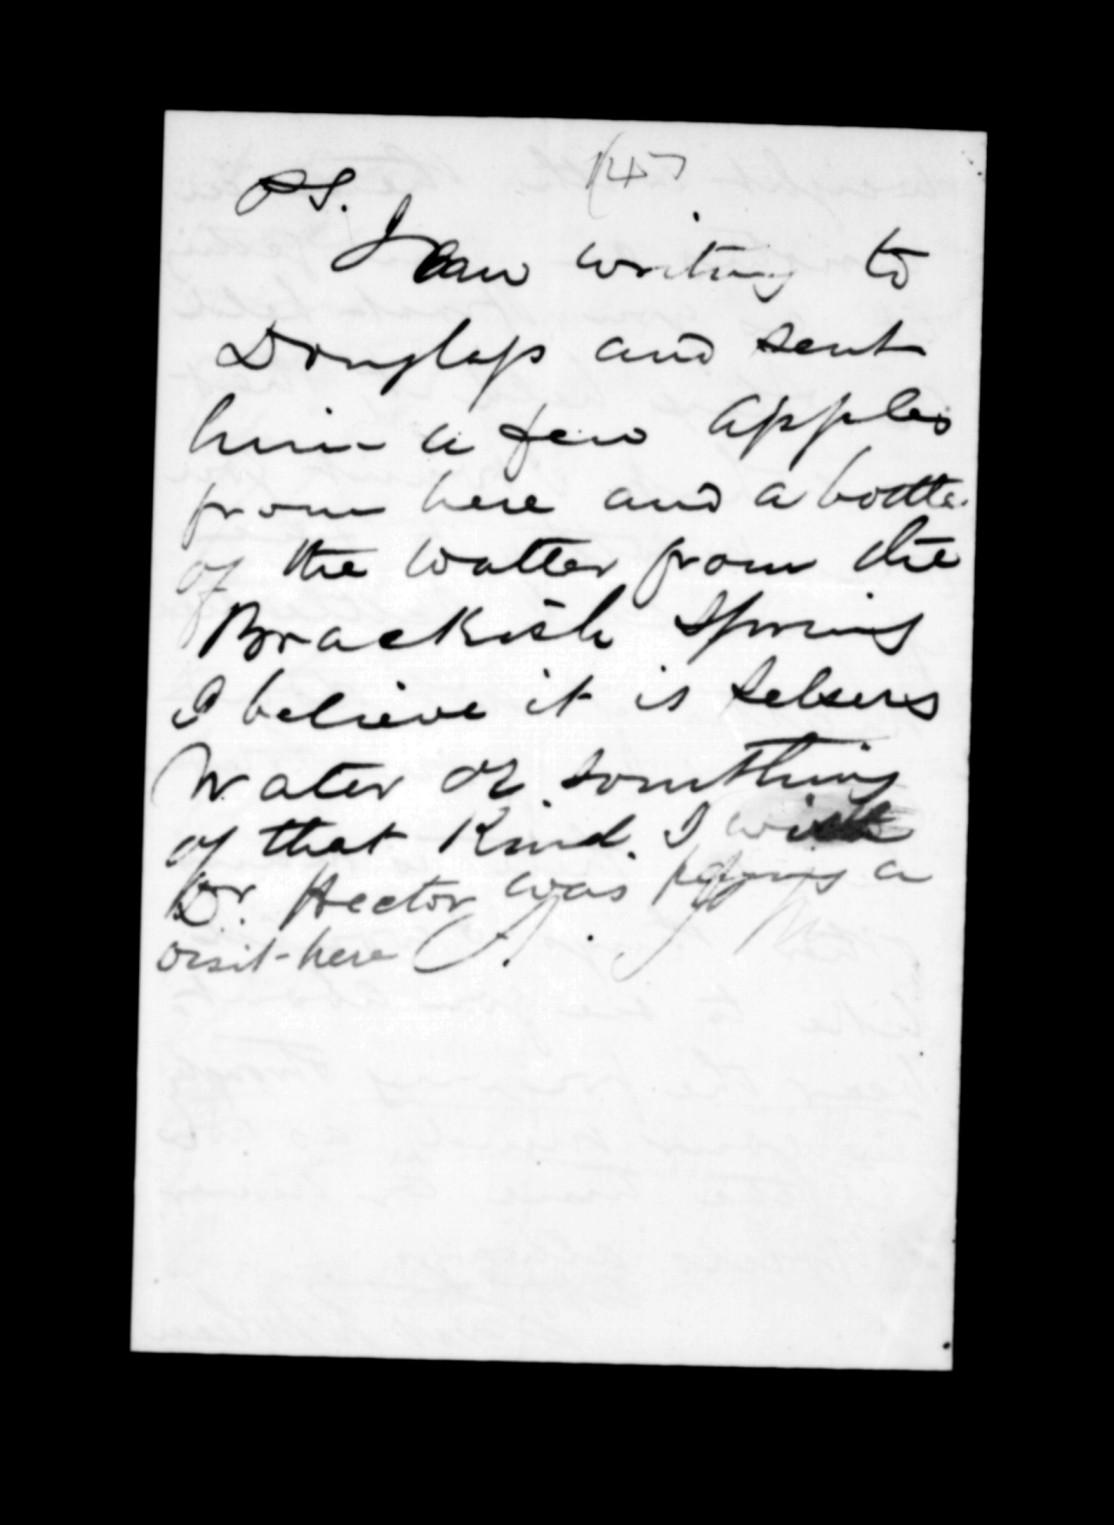 147
PS.
I am writing to
Douglass and sent
him a few apples
from here and a bottle
of the watter from the
Brackish Spring
I believe it is Selsers
Water or something
of that Kind. I wish
Dr. Hector was paying a
visit here